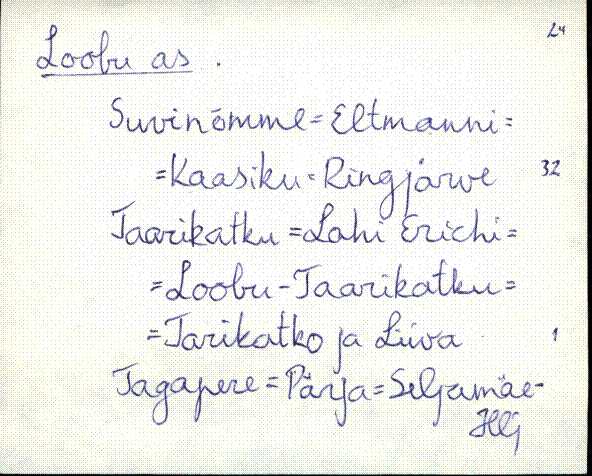 24
Loobu as.
Suvinõmme = Eltmanni =
= Kaasiku = Ringjärve 32
Taarikatku = Lahi Erichi =
= Loobu - Taarikatku =
= Tarikatko ja Liiva 1
Tagapere = Pärja = Seljamäe-
Hlj